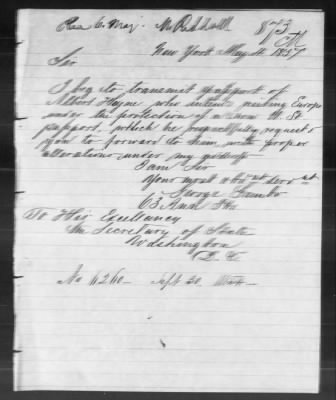 Rec 6. May.
873
New York May 11. 1857
Sir
I beg to transmit passport of
Albert Hayne who intends visiting Europe
under the protection of a new U. St.
passport, which he respectfully requests
you to forward to him, with proper
alterations under my
I am Sir
Your most obdt servt
George
63 Ann Str
To His Excellency
The Secretary of State
Washington
D. C.
No 6260 Sept 30